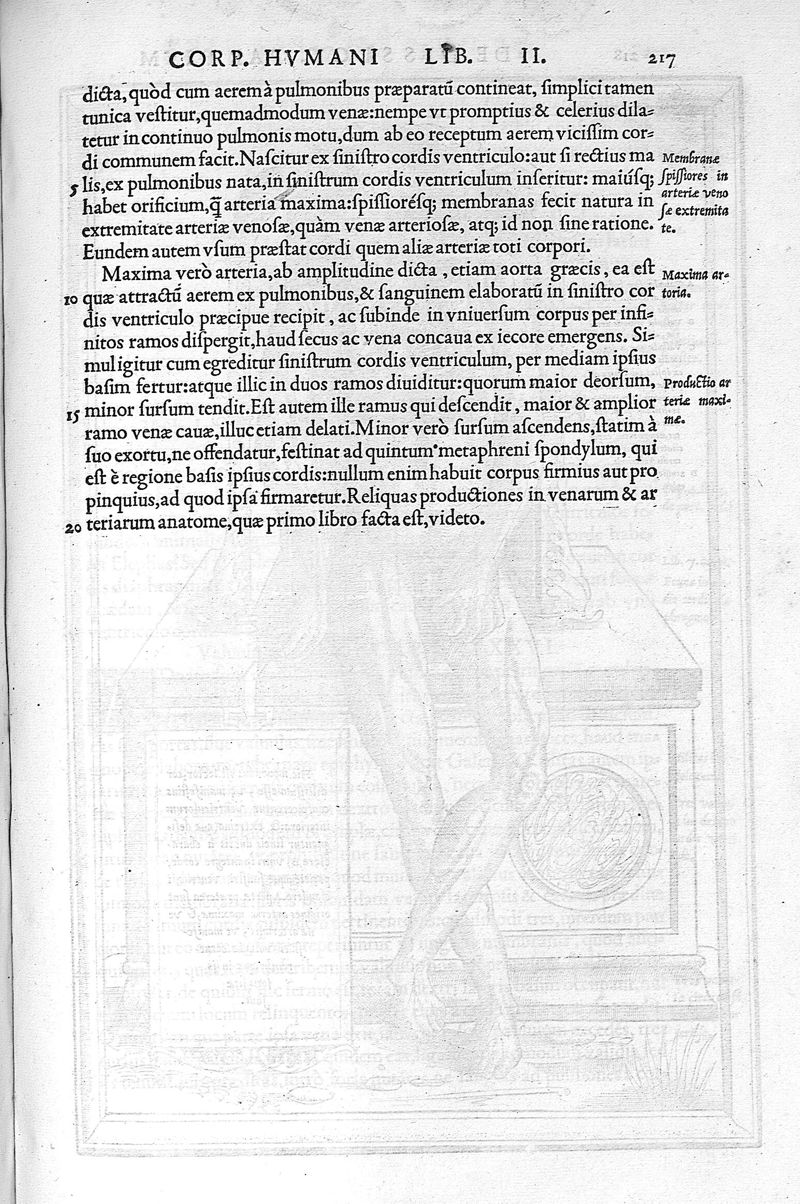 CORP. HVMANI LIB. II. 217
dicta, quòd cum aerem à pulmonibus præparatũ contineat, ſimplici tamen
tunica veſtitur, quemadmodum venæ: nempe vt promptius & celerius dila=
tetur in continuo pulmonis motu, dum ab eo receptum aerem viciſſim cor=
di communem facit. Naſcitur ex ſiniſtro cordis ventriculo: aut ſi rectius ma
5 lis, ex pulmonibus nata, in ſiniſtrum cordis ventriculum inſeritur: maiúſq;
habet orificium, q̃ arteria maxima: ſpiſſioréſq; membranas fecit natura in
extremitate arteriæ venoſæ, quàm venæ arterioſæ, atq; id non ſine ratione.
Eundem autem vſum præſtat cordi quem aliæ arteriæ toti corpori.
Membranæ
ſpiſſiores in
arteriæ veno
ſæ extremita
te.
Maxima verò arteria, ab amplitudine dicta, etiam aorta græcis, ea eſt
10 quæ attractũ aerem ex pulmonibus, & ſanguinem elaboratũ in ſiniſtro cor
dis ventriculo præcipue recipit, ac ſubinde in vniuerſum corpus per infi=
nitos ramos diſpergit, haud ſecus ac vena concaua ex iecore emergens. Si=
mul igitur cum egreditur ſiniſtrum cordis ventriculum, per mediam ipſius
baſim fertur: atque illic in duos ramos diuiditur: quorum maior deorſum,
15 minor ſurſum tendit. Eſt autem ille ramus qui deſcendit, maior & amplior
ramo venæ cauæ, illuc etiam delati. Minor verò ſurſum aſcendens, ſtatim à
ſuo exortu, ne offendatur, feſtinat ad quintum metaphreni ſpondylum, qui
eſt è regione baſis ipſius cordis: nullum enim habuit corpus firmius aut pro
pinquius, ad quod ipſa firmaretur. Reliquas productiones in venarum & ar
20 teriarum anatome, quæ primo libro facta eſt, videto.
Maxima ar=
teria.
Productio ar
teriæ maxi=
mæ.